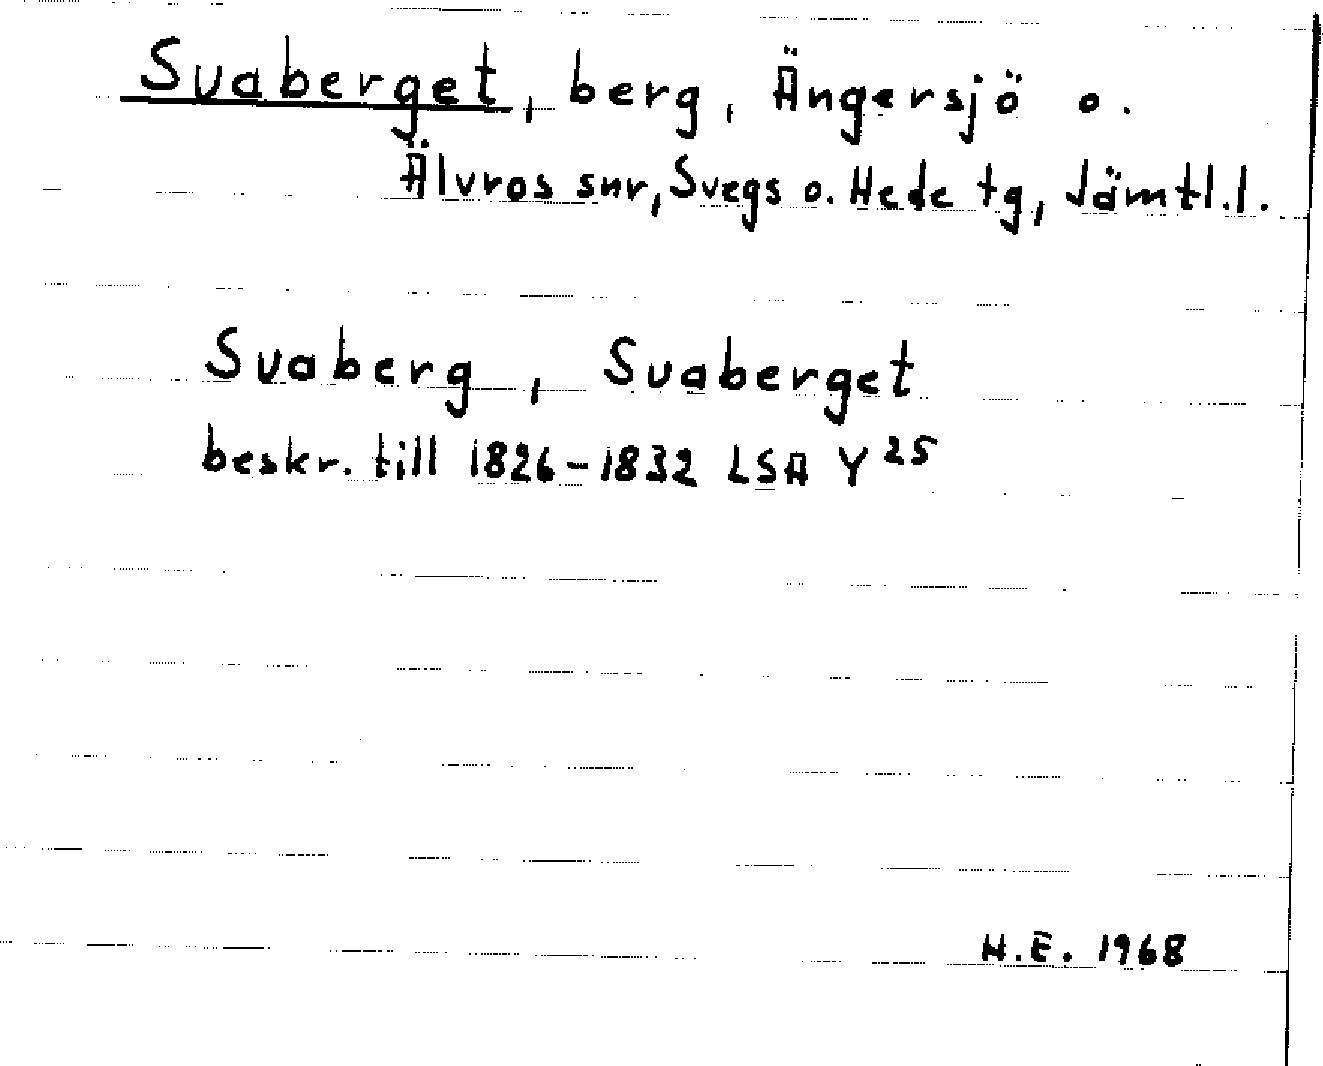 Svaberget, berg, Ängersjö o.
Älvros snr, Svegs o. Hede tg, Jämtl.l.
Svaberg, Svaberget
beskr. till 1826-1832 LSA Y 25
H.E. 1968